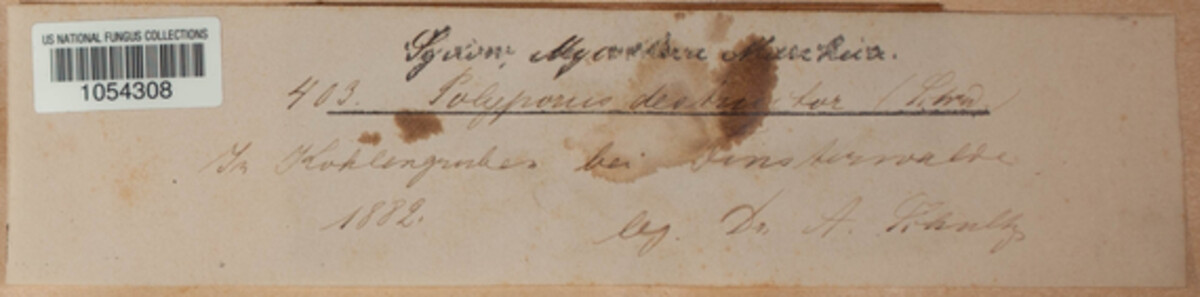 US NATIONAL FUNGUS COLLECTIONS
1054308
Sydow, Mycotheca Marchica.
403. Polyporus destructor (Schrad.)
In Kohlengruben bei Finsterwalde
1882. leg. Dr. A. Schultz